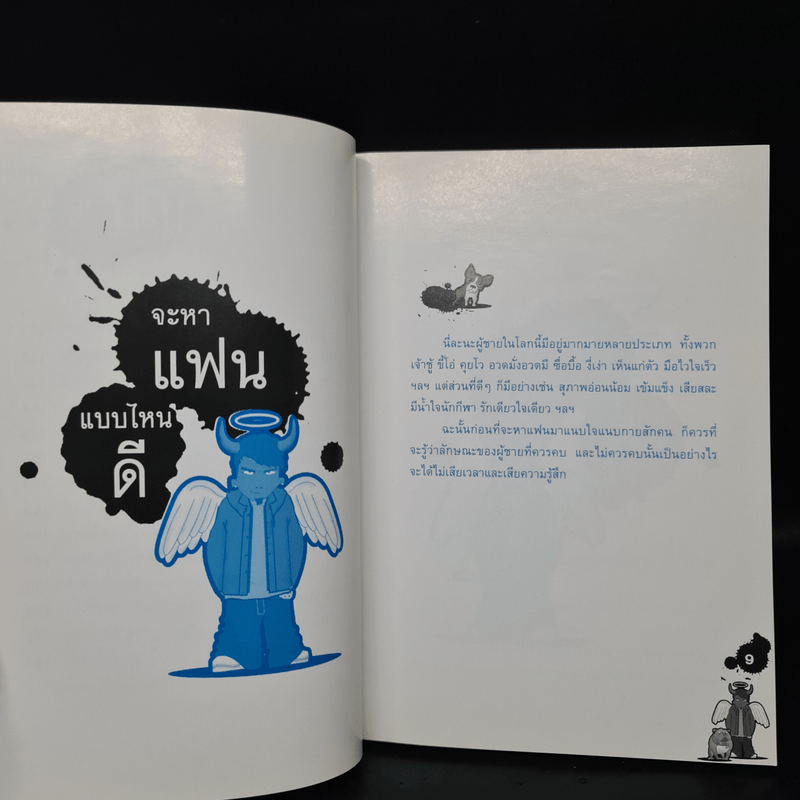 จะหา
แฟน
แบบไหน
ดี
นี่ละนะผู้ชายในโลกนี้มีอยู่มากมายหลายประเภท ทั้งพวก
เจ้าชู้ ขี้โอ่ คุยโว อวดมั่งอวดมี ซื่อบื้อ งี่เง่า เห็นแก่ตัว มือไวใจเร็ว
ฯลฯ แต่ส่วนที่ดีๆ ก็มีอย่างเช่น สุภาพอ่อนน้อม เข้มแข็ง เสียสละ
มีน้ำใจนักกีฬา รักเดียวใจเดียว ฯลฯ
ฉะนั้นก่อนที่จะหาแฟนมาแนบใจแนบกายสักคน ก็ควรที่
จะรู้ว่าลักษณะของผู้ชายที่ควรคบ และไม่ควรคบนั้นเป็นอย่างไร
จะได้ไม่เสียเวลาและเสียความรู้สึก
9